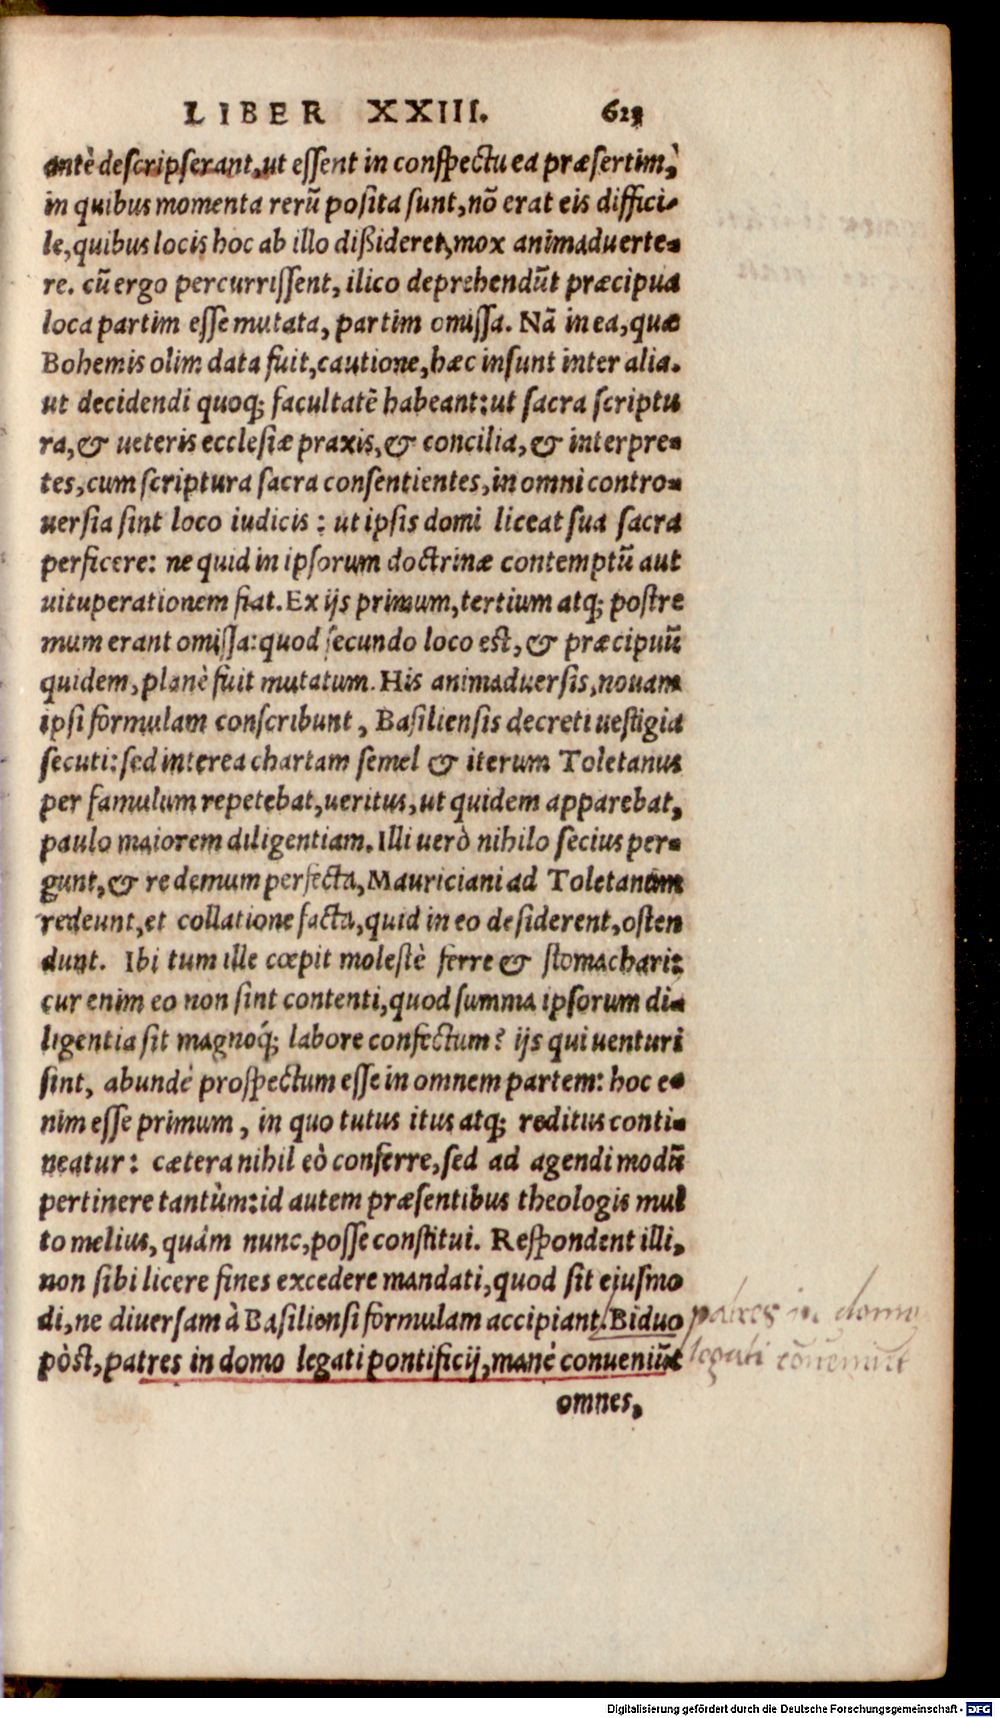 LIBER XXIII. 623
antè descripserant, ut essent in conspectu ea præsertim,
in quibus momenta rerũ posita sunt, nõ erat eis diffici-
le, quibus locis hoc ab illo dißideret, mox animaduerte-
re. cũ ergo percurrissent, ilico deprehendũt præcipua
loca partim esse mutata, partim omissa. Nã in ea, quæ
Bohemis olim data fuit, cautione, hæc insunt inter alia.
ut decidendi quoq; facultatẽ habeant: ut sacra scriptu
ra, & ueteris ecclesiæ praxis, & concilia, & interpre-
tes, cum scriptura sacra consentientes, in omni contro-
uersia sint loco iudicis: ut ipsis domi liceat sua sacra
perficere: ne quid in ipsorum doctrinæ contemptũ aut
uituperationem fiat. Ex ijs primum, tertium atq; postre
mum erant omissa: quod secundo loco est, & præcipuũ
quidem, planè fuit mutatum. His animaduersis, nouam
ipsi formulam conscribunt, Basiliensis decreti uestigia
secuti: sed interea chartam semel & iterum Toletanus
per famulum repetebat, ueritus, ut quidem apparebat,
paulo maiorem diligentiam. Illi uerò nihilo secius per-
gunt, & re demum perfecta, Mauriciani ad Toletanum
redeunt, et collatione facta, quid in eo desiderent, osten
dunt. Ibi tum ille cœpit molestè ferre & stomachari:
cur enim eo non sint contenti, quod summa ipsorum di-
ligentia sit magnoq́; labore confectum? ijs qui uenturi
sint, abundè prospectum esse in omnem partem: hoc e-
nim esse primum, in quo tutus itus atq; reditus conti-
neatur: cætera nihil eò conferre, sed ad agendi modũ
pertinere tantùm: id autem præsentibus theologis mul
to melius, quàm nunc, posse constitui. Respondent illi,
non sibi licere fines excedere mandati, quod sit eiusmo
di, ne diuersam à Basiliensi formulam accipiant. Biduo
pòst, patres in domo legati pontificij, manè conueniũt
omnes,
patres in domo
legati cõueniũt
Digitalisierung gefördert durch die Deutsche Forschungsgemeinschaft - DFG